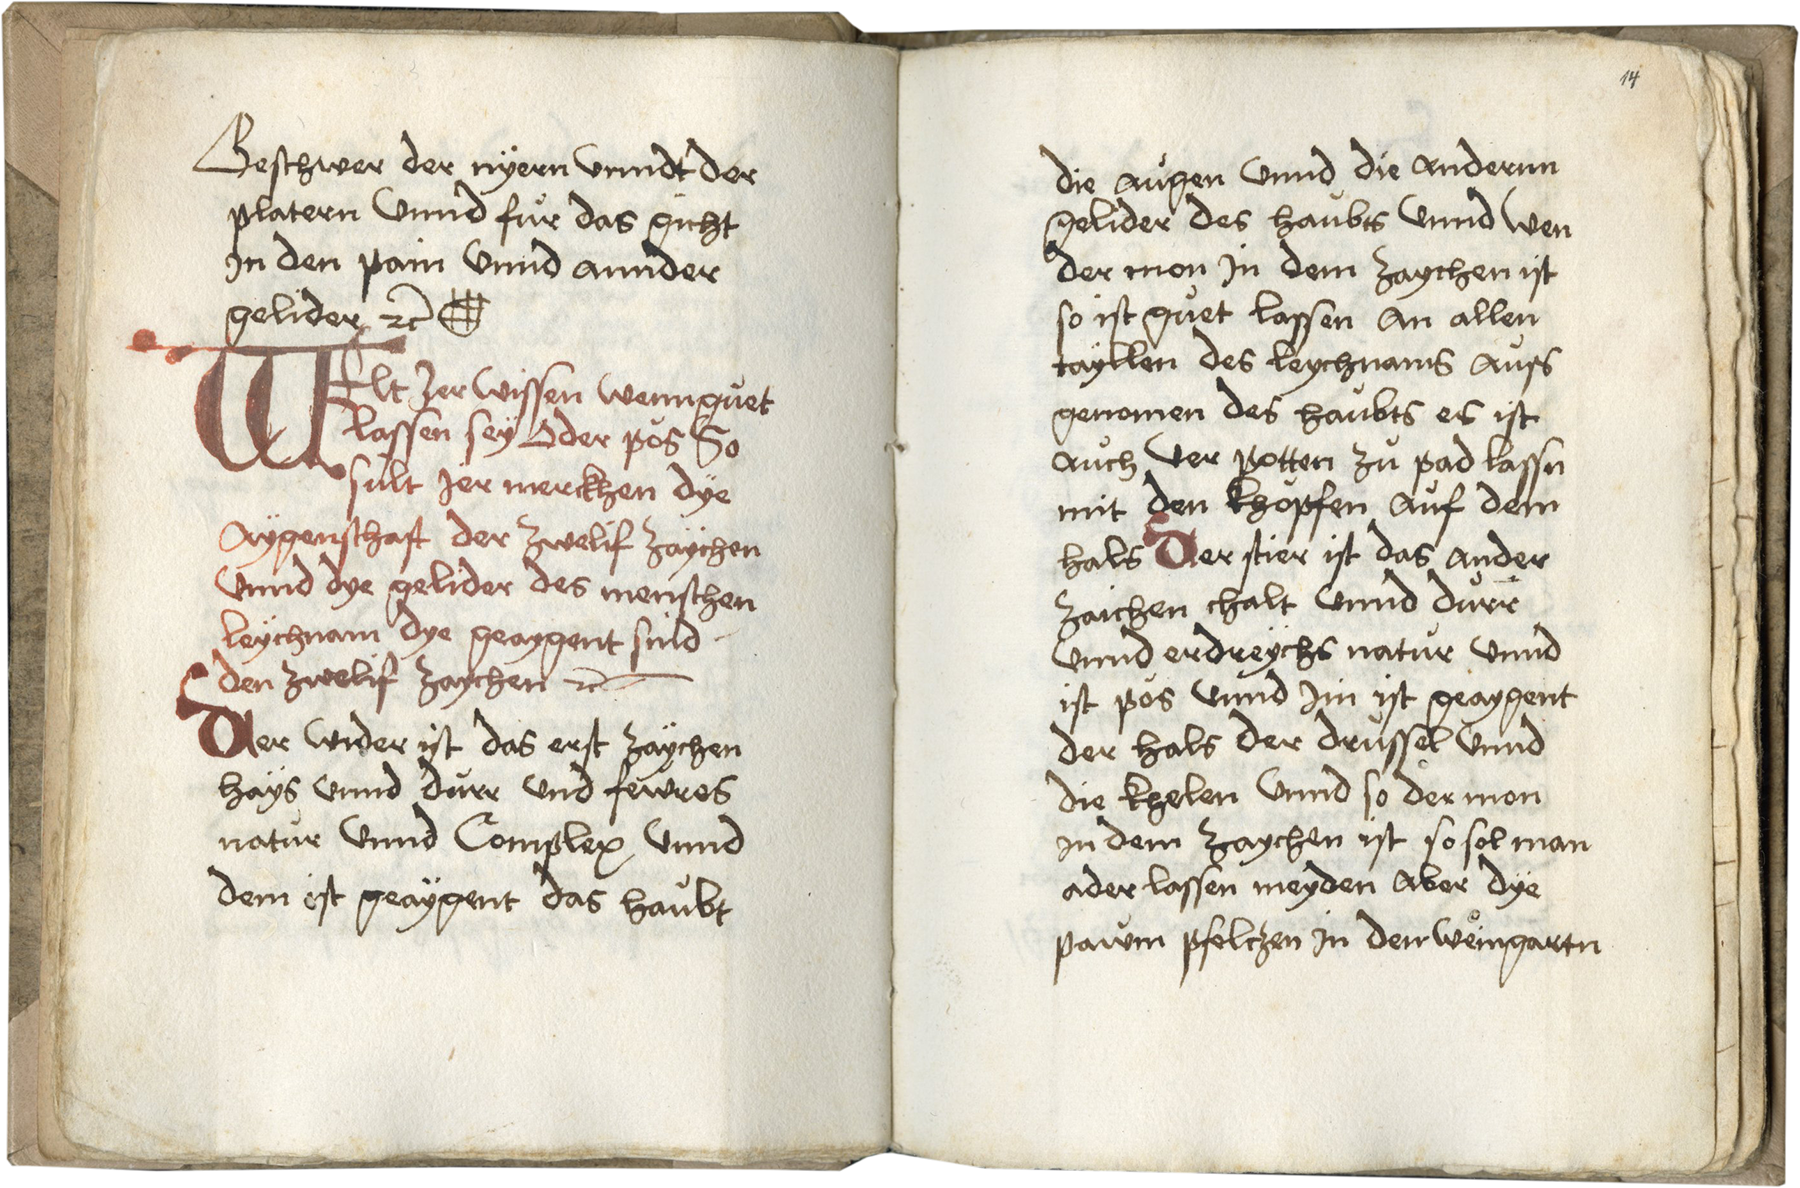 Beschwer der nÿern vnndt der
platern vnnd fůr das gicht
jn den pain vnnd annder
gelider ꝛc
WElt Jer wissen wenn gůet
lassen seÿ Oder pős So
sůlt jer merckhen dÿe
Aÿgenschaft der zwelif zäÿchen
vnnd dye gelider des menschen
leÿchnam dye geaygent sind
den zwelif zaychen ꝛc
Der wider ist das erst zaÿchen
haÿs vnnd důrr vnd fewres
natůr vnnd Complex vnnd
dem ist geaÿgent das haůbt
14
die aůgen vnnd die andernn
gelider des haůbts vnnd wen
der mon jn dem zaychen ist
so ist gůet lassen An allen
tayllen des leychnams Aůss
genomen des haůbts es ist
aůch ver potten zů pad lassn
mit den khöpfen Aůf dem
hals Der stier ist das ander
zaichen chalt vnnd důrr
vnnd erdreÿchs natůr vnnd
ist pős vnnd jm ist geaygent
der hals der drůssel vnnd
die khelen vnnd so der mon
jn dem zaychen ist so sol man
ader lassen meyden Aber dÿe
pawm pfelczen jn dem weingartn